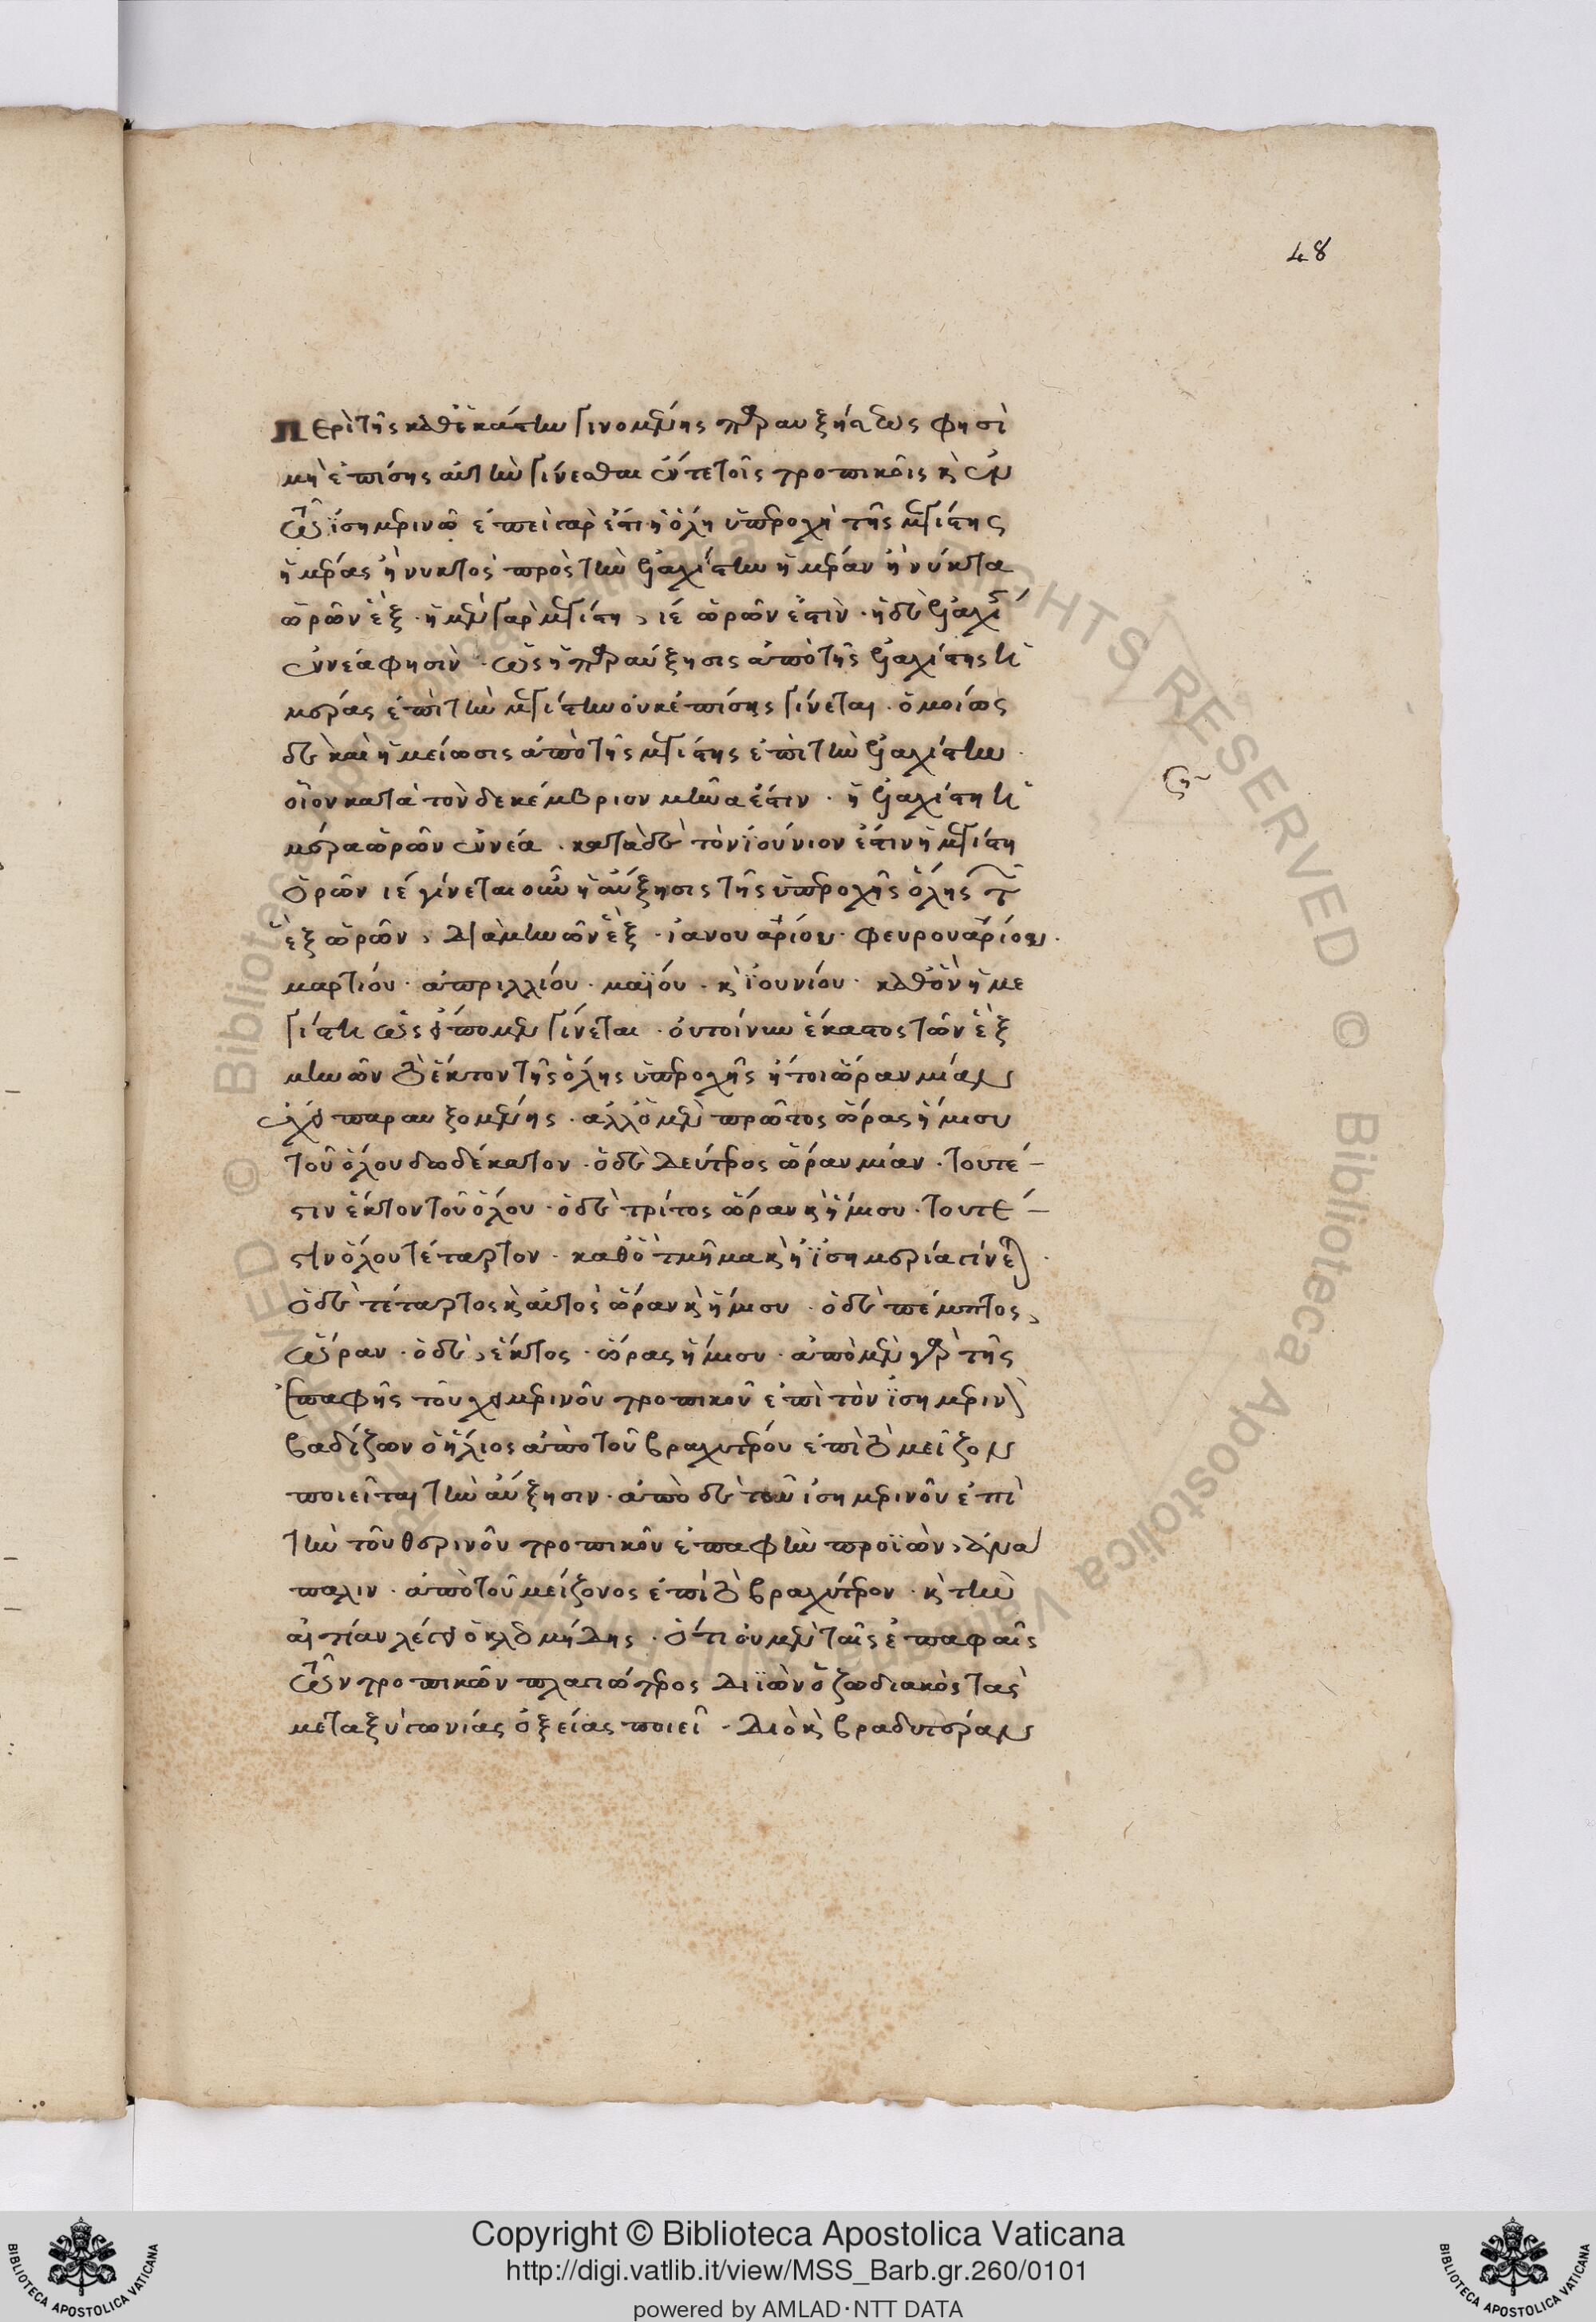 48
Περὶ τῆς καθ' ἑκάστην γινομένης παραυξήσεώς φησι
μὴ ἐπίσης αὐτὴν γίνεσθαι ἔν τε τοῖς τροπικοῖς κὶ ἐν
τῶ ἰσημερινῶ ἐπεὶ γάρ ἐστι ἡ ὅλη ὑπεροχὴ τῆς μεγίστης
ἡμέρας ἢ νυκτὸς πρὸς τὴν ἐλαχίστην ἡμέραν ἢ νύκτα
ὡρῶν ἓξ · ἡ μὲν γὰρ μεγίστη, ιέ ὡρῶν ἐστὶν · ἡ δὲ ἐλαχίστ
ἐννέα φησὶν · ὡς ἡ παραύξησις ἀπὸ τῆς ἐλαχίστης ἡ
μέρας ἐπὶ τὴν μεγίστην οὐκ ἐπίσης γίνεται · ὁμοίως
δὲ καὶ ἡ μείωσις ἀπὸ τῆς μεγίστης ἐπὶ τὴν ἐλαχίστην ·
οἷον κατὰ τὸν δεκέμβριον μῆνα ἐστιν · ἡ ἐλαχίστη ἡ
μέρα ὡρῶν ἐννέα · κατὰ δὲ τὸν ἰούνιον ἐστιν ἡ μεγίστη
ὡρῶν ιέ γίνεται οὖν ἡ αὔξησις τῆς ὑπεροχῆς ὅλης τῶν
ἓξ ὡρῶν, διὰ μηνῶν ἓξ · ἰανουαρίου · φευρουαρίου ·
μαρτίου · ἀπριλλίου · μαΐου · κὶ ἰουνίου · καθ' ὃν ἡ με
γίστη ὡς εἴπομεν γίνεται · οὐ τοίνυν ἕκαστος τῶν ἓξ
μηνῶν τὸ ἕκτον τῆς ὅλης ὑπεροχῆς ἤτοι ὥραν μίαν
ἔχει παραυξομένης · ἀλλ' ὁ μὲν πρῶτος ὥρας ἥμισυ
τοῦ ὅλου δωδέκατον · ὁ δὲ δεύτερος ὥραν μίαν · τουτέ-
στιν ἕκτον τοῦ ὅλου · ὁ δὲ τρίτος ὥραν κὶ ἥμισυ · τουτέ-
στιν ὅλου τέταρτον · καθ' ὃ τμῆμα κὶ ἡ ἰσημερία γίνεται ·
ὁ δὲ τέταρτος κὶ αὐτὸς ὥραν κὶ ἥμισυ · ὁ δὲ πέμπτος,
ὥραν · ὁ δὲ, ἕκτος · ὥρας ἥμισυ · ἀπὸ μὲν γὰρ τῆς
ἐπαφῆς τοῦ χειμερινοῦ τροπικοῦ ἐπὶ τὸν ἰσημερινὸν
βαδίζων ὁ ἥλιος ἀπὸ τοῦ βραχυτέρου ἐπὶ τὸ μεῖζον
ποιεῖται τὴν αὔξησιν · ἀπὸ δὲ τοῦ ἰσημερινοῦ ἐπὶ
τὴν τοῦ θερινοῦ τροπικοῦ ἐπαφὴν προϊὼν, ἀνα
παλιν · ἀπὸ τοῦ μείζονος ἐπὶ τὸ βραχύτερον · κὶ τὴν
αἰτίαν λέγει ὁ κλεομήδης · ὅτι οὐ μὲν ταῖς ἐπαφαῖς
τῶν τροπικῶν πλαγιώτερος διϊὼν ὁ ζωδιακὸς τὰς
μεταξὺ γωνίας ὀξείας ποιεῖ · διὸ κὶ βραδυτέραν
Copyright © Biblioteca Apostolica Vaticana
http://digi.vatlib.it/view/MSS_Barb.gr.260/0101
powered by AMLAD·NTT DATA
BIBLIOTECA APOSTOLICA VATICANA
BIBLIOTECA APOSTOLICA VATICANA